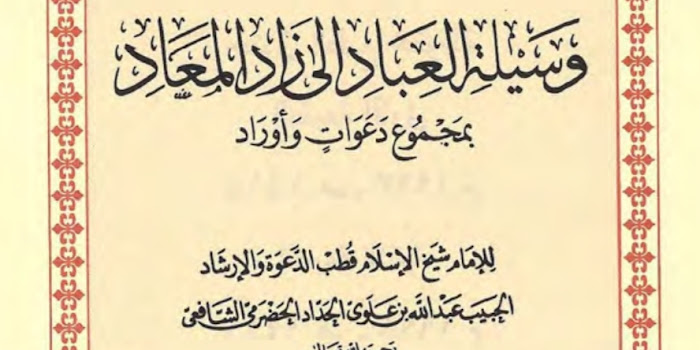 وَسِيْلَةِ العِبَادِ إِلىٰ زَادِ المَعَادِ
بمَجْمُوع دَعَوَاتٍ وَأَوْرَاد
لِلإِمَام شَيخ الإِسْلَام قُطْب الدَّعوَة وَالإِرشَاد
الحَبيب عَبْد الله بن عَلوي الحَدّاد الحَضْرَمي الشَّافعي